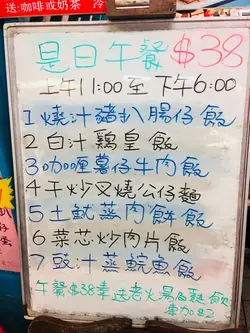 送:咖啡或奶茶 冷
是日午餐 $38
上午11:00至下午6:00
1燒汁豬扒腸仔飯
2白汁鶏皇飯
3咖喱薯仔牛肉飯
4干炒叉燒公仔麵
5土魷蒸肉餅飯
6菜芯炒肉片飯
7豉汁蒸鯇魚飯
午餐$38奉送老火湯
凍加$2